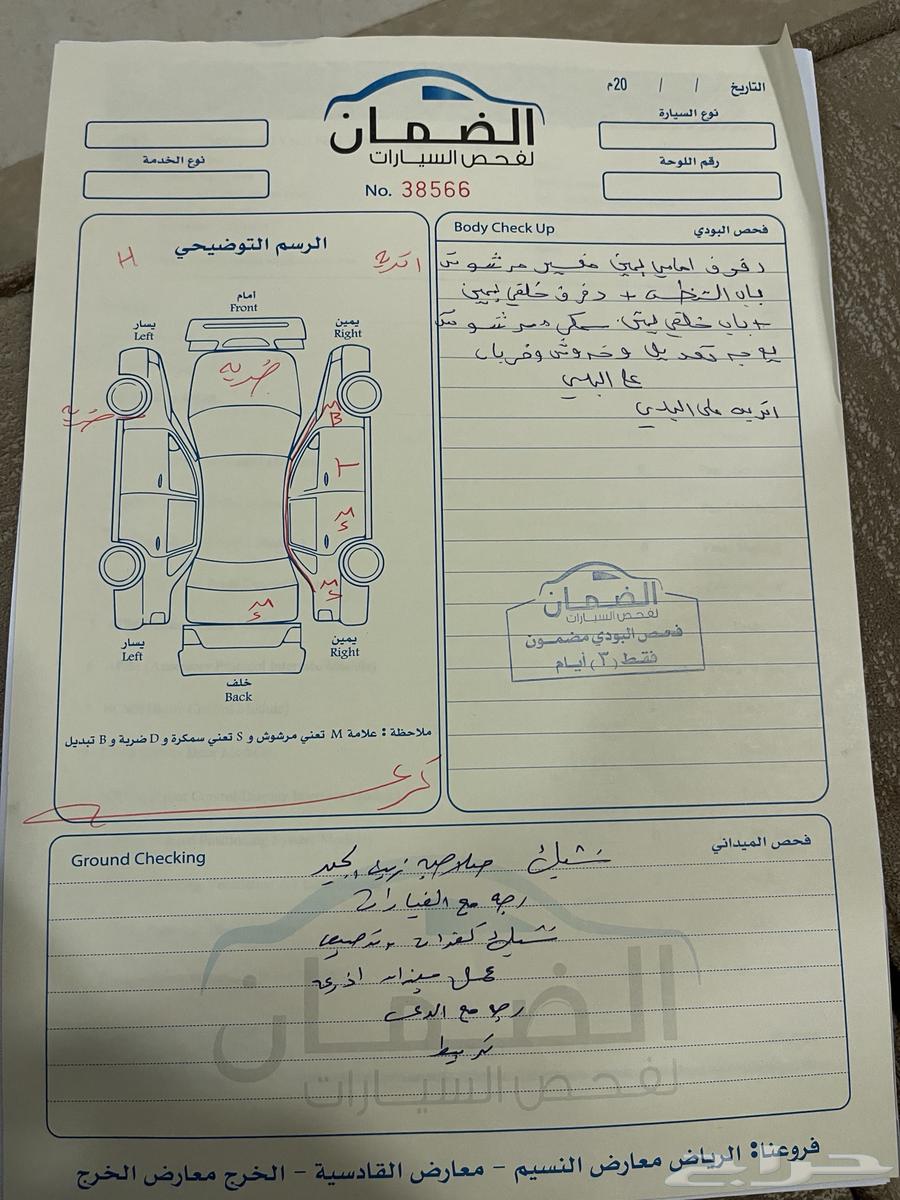 التاريخ / / 20م
نوع السيارة
رقم اللوحة
الضمان
لفحص السيارات
No. 38566
نوع الخدمة
فحص البودي
Body Check Up
رفرف امامي يمين مغير مرشوش
باب + رفرف خلفي يمين
+ باب خلفي سمكره مرشوش
يوجد تعديل وخدوش وضربات
على البدي
اتربه على البدي
الضمان
لفحص السيارات
فحص البودي مضمون
فقط (٣) أيام
الرسم التوضيحي
اتربه
H
أمام
Front
يسار
Left
يمين
Right
ضربه
ضربه
M
B
M
S
M
S
M
S
يسار
Left
يمين
Right
خلف
Back
ملاحظة : علامة M تعني مرشوش و S تعني سمكرة و D ضربة و B تبديل
فحص الميداني
Ground Checking
تشيك
رجه مع الغيارات
تشيك كفرات
رجه مع
الضمان
لفحص السيارات
فروعنا: الرياض معارض النسيم - معارض القادسية - الخرج معارض الخرج
حراج